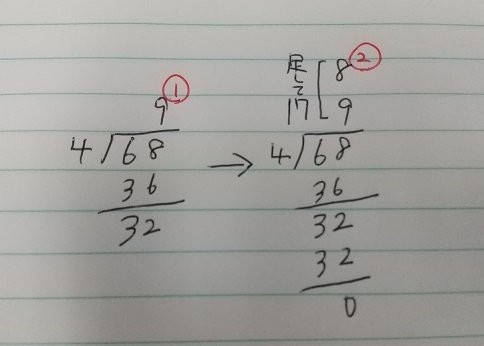 9 ①
4 68
36
32
→
足して 17
8 ②
9
4 68
36
32
32
0